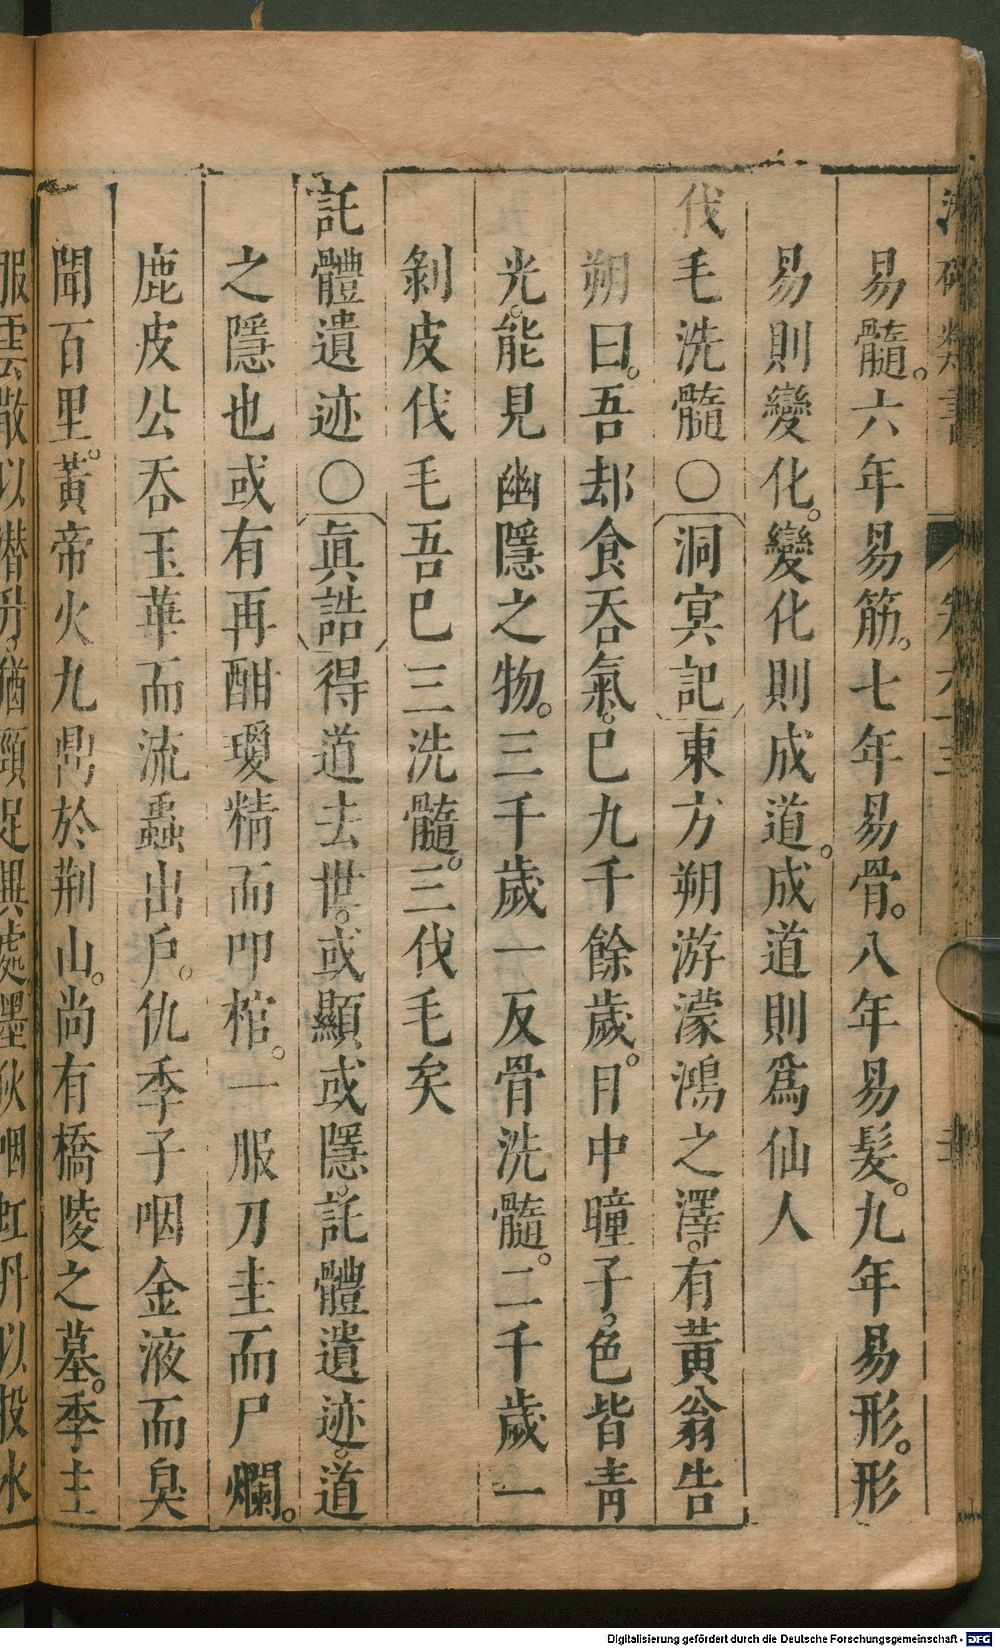 易髓。六年易筋。七年易骨。八年易髮。九年易形。形
易則變化。變化則成道。成道則爲仙人
伐毛洗髓〇洞冥記東方朔游濛鴻之澤。有黃翁告
朔曰。吾却食吞氣。已九千餘歲。目中瞳子。色皆青
光。能見幽隱之物。三千歲一反骨洗髓。二千歲一
剝皮伐毛吾已三洗髓。三伐毛矣
託體遺迹〇眞誥得道去世。或顯或隱。託體遺迹。道
之隱也或有再酣瓊精而叩棺。一服刀圭而尸爛。
鹿皮公吞玉華而流蟲出戶。仇季子咽金液而臭
聞百里。黃帝火九鼎於荆山。尚有橋陵之墓。季主
服雲散以潛升。猶頭足異處墨狄咽虹丹以投水
Digitalisierung gefördert durch die Deutsche Forschungsgemeinschaft - DFG